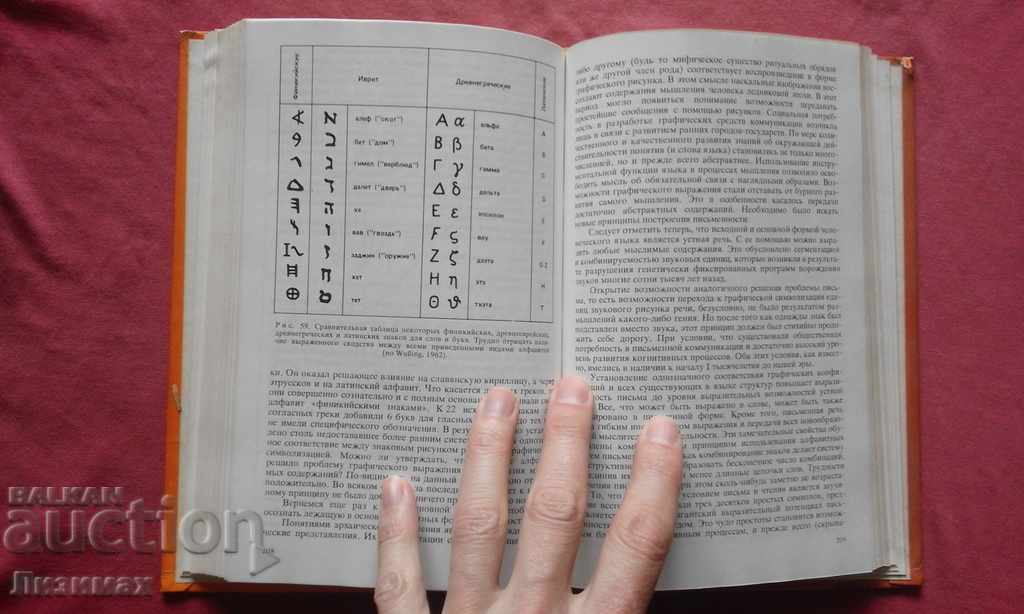 Финикийские
Иврит
Древнегреческие
Латинские
алеф ("скот") Α α альфа A
бет ("дом") Β β бета B
гимел ("верблюд") Γ γ гамма G
далет ("дверь") Δ δ дельта D
хе Ε ε эпсилон E
вав ("гвоздь") F
заджин ("оружие") Ζ ζ дзэта G Z
хет Η η эта H
тет Θ ϑ тхэта T
Рис. 59. Сравнительная таблица некоторых финикийских, древнееврейских,
древнегреческих и латинских знаков для слов и букв. Трудно отрицать нали-
чие выраженного сходства между всеми приведенными видами алфавита
(по Wußing, 1962).
ки. Он оказал решающее влияние на славянскую кириллицу, а через
этрусков и на латинский алфавит. Что касается
они совершенно сознательно и с полным основа
алфавит «финикийскими знаками». К 22
согласных греки добавили 6 букв для гласных
не имели специфического обозначения. В резу
дело столь недостававшее более ранним систе
ное соответствие между знаковым рисунком
символизацией. Можно ли утверждать,
решило проблему графического выражения
ных содержаний? По-видимому, на данный
положительно. Во всяком за последую
ному принципу не было до ничего при
Вернемся еще раз к
осознать лежащую в основе ной фо
Понятиями архаическо
ческие представления. Их тации с
208
либо другому (будь то мифическое существо ритуальных обрядов
или же другой член рода) соответствует воспроизведение в форме
графического рисунка. В этом смысле наскальные изображения вос-
создают содержания мышления человека ледниковой эпохи. В этот
период могло появиться понимание возможности передавать
простейшие сообщения с помощью рисунков. Социальная потреб-
ность в разработке графических средств коммуникации возникла
лишь в связи с развитием ранних городов-государств. По мере коли-
чественного и качественного развития знаний об окружающей дей-
ствительности понятия (и слова языка) становились не только много-
численней, но и прежде всего абстрактнее. Использование инстру-
ментальной функции языка в процессах мышления позволило осво-
бодить мысль об обязательной связи с наглядными образами. Воз-
можности графического выражения стали отставать от бурного раз-
вития самого мышления. Это в особенности касалось передачи
достаточно абстрактных содержаний. Необходимо было искать
новые принципы построения письменности.
Следует отметить теперь, что исходной и основной формой чело-
веческого языка является устная речь. С ее помощью можно выра-
зить любые мыслимые содержания. Это обусловлено сегментацией
и комбинируемостью звуковых единиц, которые возникли в результа-
те разрушения генетически фиксированных программ порождения
звуков многие сотни тысяч лет назад.
Открытие возможности аналогичного решения проблемы пись-
ма, то есть возможности перехода к графической символизации еди-
ниц звукового рисунка речи, безусловно, не было результатом раз-
мышлений какого-либо гения. Но после того как однажды знак был
подставлен вместо звука, этот принцип должен был стихийно проло-
жить себе дорогу. При условии, что существовала общественная
потребность в письменной коммуникации и достаточно высокий уро-
вень развития когнитивных процессов. Оба эти условия, как извест-
но, имелись в наличии к началу I тысячелетия до нашей эры.
Установление однозначного соответствия графических конфи-
гураций и всех существующих в языке структур повышает вырази-
тельность письма до уровня выразительных возможностей устной
Все, что может быть выражено в слове, может быть также
в письменной форме. Кроме того, письменная речь
гибким инструментом выражения и передачи всех новообразо-
мыслительной деятельности. Эти замечательные свойства обу-
принципом использования алфавитных
как комбинирование знаков делает систему
образовать бесконечное число комбинаций,
менее длинные цепочки слов. Трудности
этом сколь-нибудь заметно не возраста
То, что условием письма и чтения является звучи
трех десятков простых символов, пред-
гигантский выразительный потенциал пись-
Это чудо простоты становится возмож-
процессам, и прежде всего (скрыто
209
BALKAN
auction
Лизимах